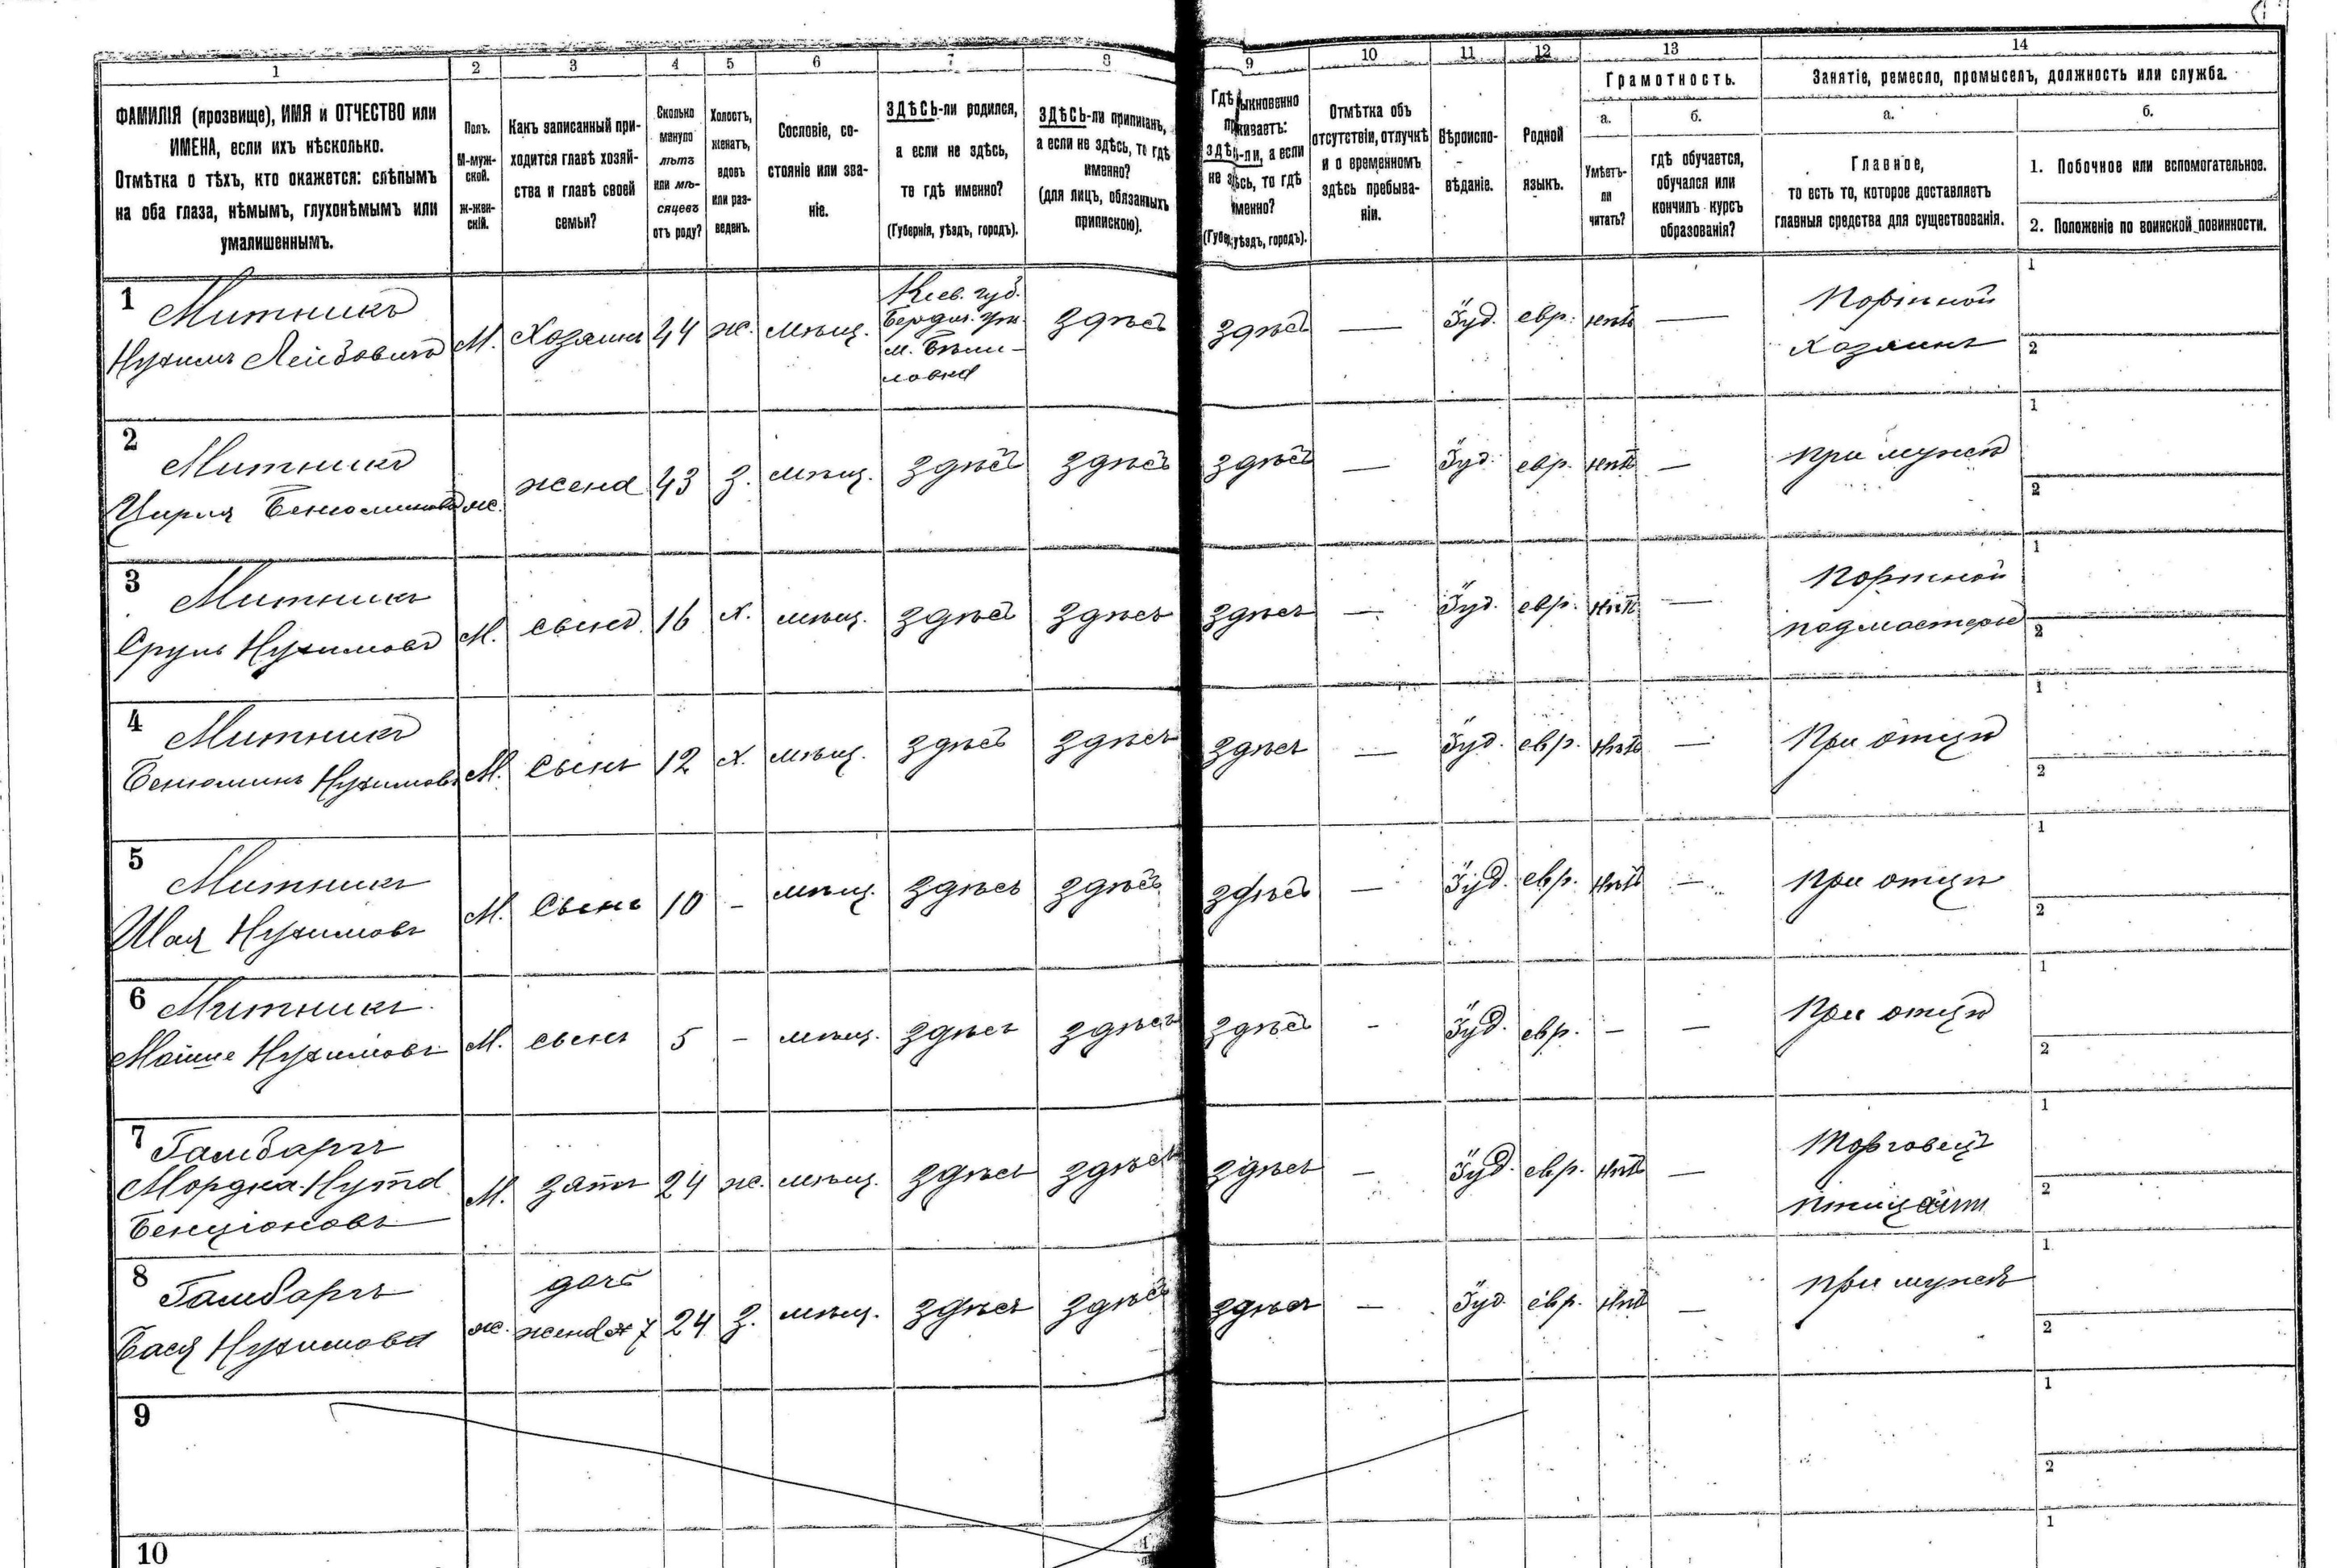 1 2 3 4 5 6 7 8 9 10 11 12 13 14
ФАМИЛІЯ (прозвище), ИМЯ и ОТЧЕСТВО или
ИМЕНА, если ихъ нѣсколько.
Отмѣтка о тѣхъ, кто окажется: слѣпымъ
на оба глаза, нѣмымъ, глухонѣмымъ или
умалишеннымъ.
Полъ.
М-муж-
ской.
Ж-жен-
скій.
Какъ записанный при-
ходится главѣ хозяй-
ства и главѣ своей
семьи?
Сколько
минуло
лѣтъ
или мѣ-
сяцевъ
отъ роду?
Холостъ,
женатъ,
вдовъ
или раз-
веденъ.
Сословіе, со-
стояніе или зва-
ніе.
ЗДѢСЬ-ли родился,
а если не здѣсь,
то гдѣ именно?
(Губернія, уѣздъ, городъ).
ЗДѢСЬ-ли приписанъ,
а если не здѣсь, то гдѣ
именно?
(для лицъ, обязанныхъ
припискою).
Гдѣ обыкновенно
проживаетъ:
здѣсь-ли, а если
не здѣсь, то гдѣ
именно?
(Губер., уѣздъ, городъ).
Отмѣтка объ
отсутствіи, отлучкѣ
и о временномъ
здѣсь пребыва-
ніи.
Вѣроиспо-
вѣданіе.
Родной
языкъ.
Грамотность.
а.
Умѣетъ-
ли
читать?
б.
гдѣ обучается,
обучался или
кончилъ курсъ
образованія?
Занятіе, ремесло, промыселъ, должность или служба.
а.
Главное,
то есть то, которое доставляетъ
главныя средства для существованія.
б.
1. Побочное или вспомогательное.
2. Положеніе по воинской повинности.
1
Митникъ
Нухимъ Лейбовичъ
М.
Хозяинъ
44
ж.
мѣщ.
Кіев. губ.
Бердич. уѣз.
м. Бѣли-
ловка
здѣсь
здѣсь
—
Іуд.
евр.
нѣтъ
—
Портной
хозяинъ
1
2
2
Митникъ
Цирля Бенюминова
ж.
жена
43
з.
мѣщ.
здѣсь
здѣсь
здѣсь
—
Іуд.
евр.
нѣтъ
—
при мужѣ
1
2
3
Митникъ
Сруль Нухимовъ
М.
сынъ
16
х.
мѣщ.
здѣсь
здѣсь
здѣсь
—
Іуд.
евр.
нѣтъ
—
Портной
подмастерье
1
2
4
Митникъ
Бенюминъ Нухимовъ
М.
Сынъ
12
х.
мѣщ.
здѣсь
здѣсь
здѣсь
—
Іуд.
евр.
нѣтъ
—
При отцѣ
1
2
5
Митникъ
Шая Нухимовъ
М.
Сынъ
10
-
мѣщ.
здѣсь
здѣсь
здѣсь
—
Іуд.
евр.
нѣтъ
—
При отцѣ
1
2
6
Митникъ
Мойше Нухимовъ
М.
сынъ
5
-
мѣщ.
здѣсь
здѣсь
здѣсь
-
Іуд.
евр.
—
—
При отцѣ
1
2
7
Гамбаръ
Мордка-Нута
Бенціоновъ
М.
зять
24
ж.
мѣщ.
здѣсь
здѣсь
здѣсь
—
Іуд.
евр.
нѣтъ
—
Торговецъ
птицами
1
2
8
Гамбаръ
Бася Нухимова
ж.
дочь
жена № 7
24
з.
мѣщ.
здѣсь
здѣсь
здѣсь
—
Іуд.
евр.
нѣтъ
—
при мужѣ
1
2
9
1
2
10
1